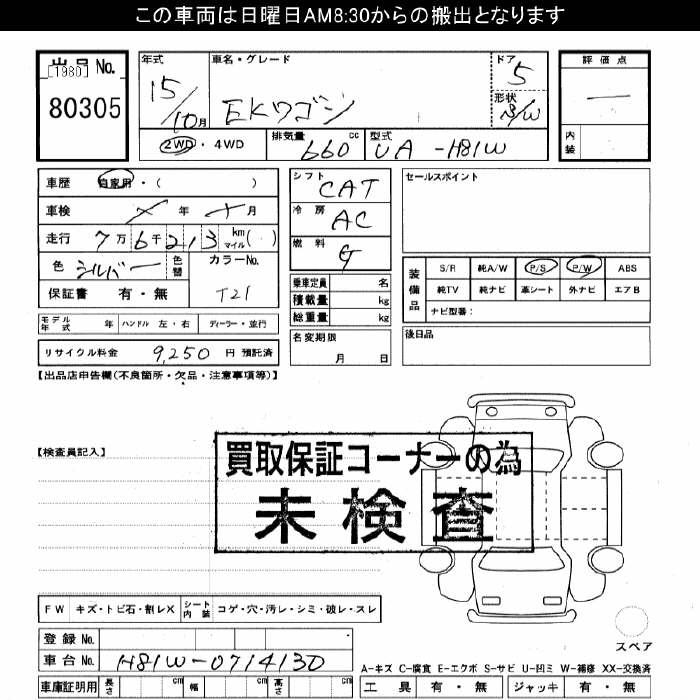 この車両は日曜日AM8:30からの搬出となります
出品 No.
[1980]
80305
年式
15/10月
車名・グレード
EKワゴン
ドア
5
形状
評価点
—
内装
2WD・4WD
排気量
660 cc
型式
UA-H81W
車歴 自家用・( )
車検 年 月
走行 7万6千213 km マイル( )
色 シルバー 色替
カラーNo.
T21
保証書 有・無
シフト CAT
冷房 AC
燃料 G
乗車定員 名
積載量 kg
総重量 kg
セールスポイント
装備品
S/R 純A/W P/S P/W ABS
純TV 純ナビ 革シート 外ナビ エアB
ナビ型番:
モデル年式 年 ハンドル 左・右 ディーラー・並行
リサイクル料金 9,250 円 預託済
名変期限
月 日
後日品
【出品店申告欄(不良箇所・欠品・注意事項等)】
【検査員記入】
買取保証コーナーの為
未検査
FW キズ・トビ石・割レX シート内装 コゲ・穴・汚レ・シミ・破レ・スレ
スペア
登録 No.
車台 No. H81W-0714130
A-キズ C-腐食 E-エクボ S-サビ U-凹ミ W-補修 XX-交換済
車庫証明用 長さ cm 幅 cm 高さ cm
工具 有・無 ジャッキ 有・無